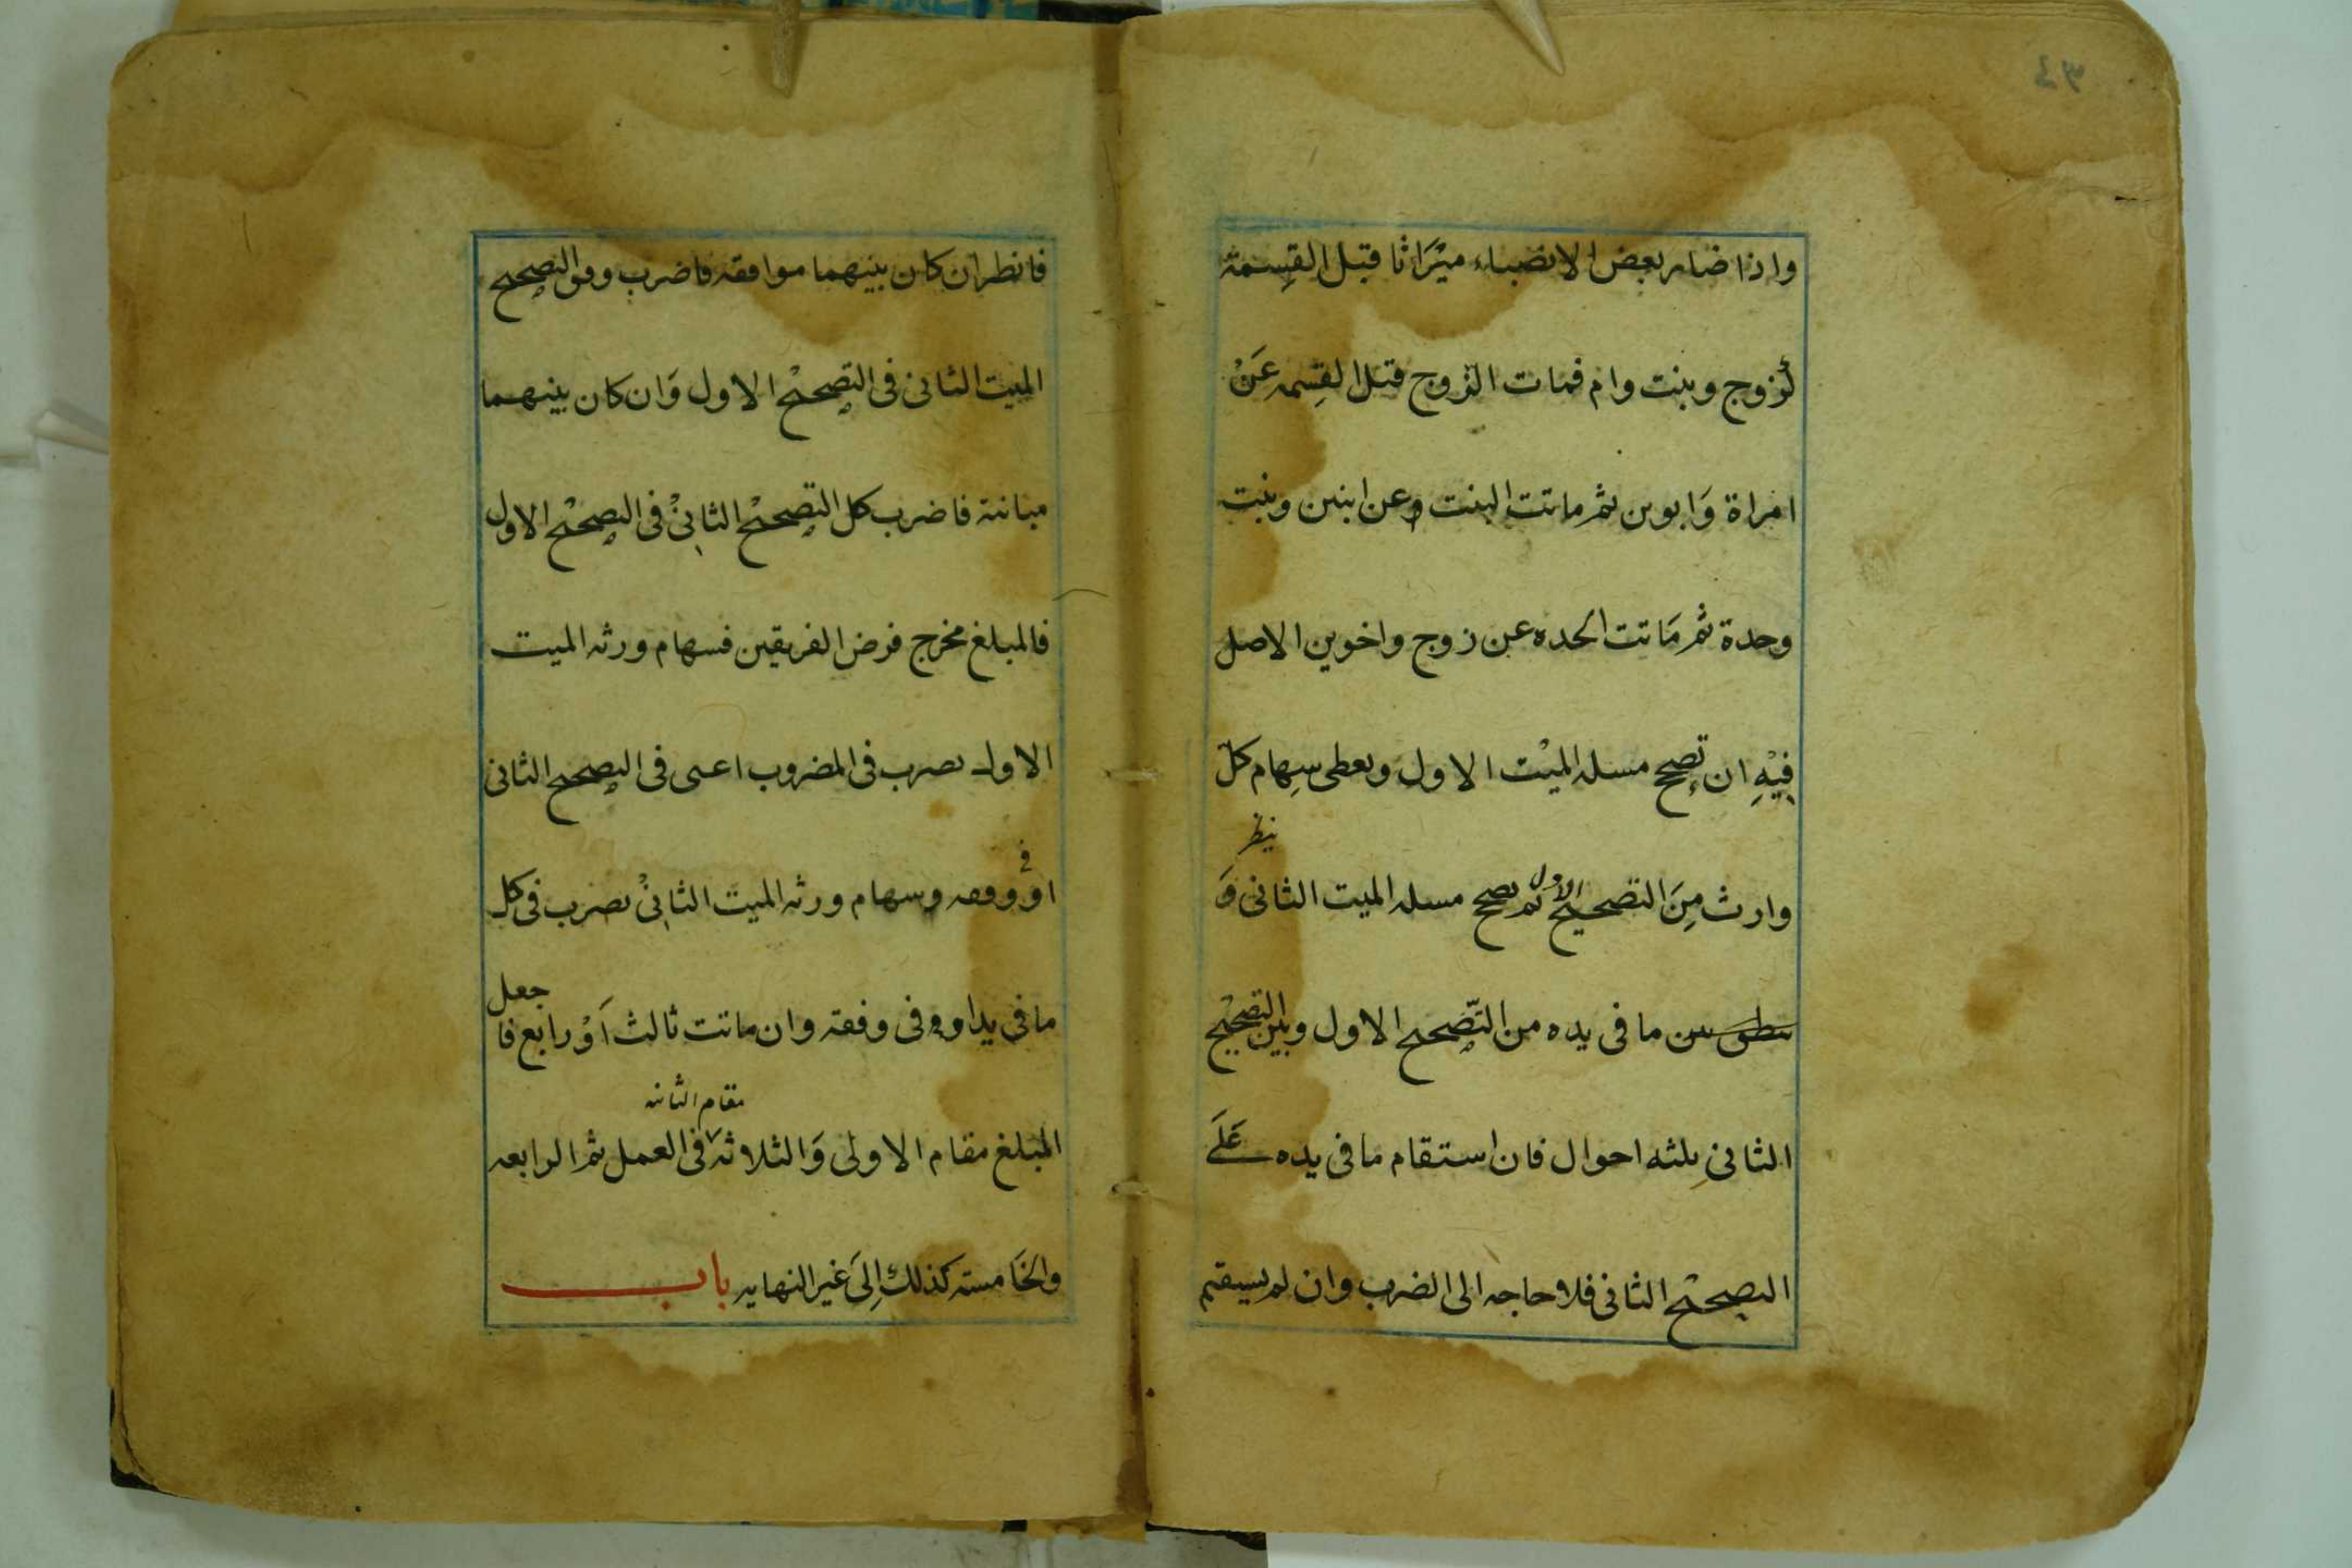 ٣٤
واذا ضار بعض الانضباء ميْرَاثا قبل القِسمة
لزوج وبنت وام فمات الزوج قبل القِسمه عَنْ
امراة وَابوين ثم ماتت البنت وعن ابنين وبنت
وحدة ثم مَاتت الحده عن زوج واخوين الاصل
فِيْهِ ان تصحح مسله الميْت الاول وبعطى سِهام كل
ينظر
وارث مِنَ التصحيح الاول ثم تصحح مسله الميت الثانى وَ
بين ما فى يده من التّصحيح الاول وبين التصحيْح
الثانىِ ثلثه احوال فان استقام ما فى يده عَلَے
التصحيْح الثانى فلا حاجه الى الضرب وان لم يسيقم
فانظر ان كان بينهما موافقه فاضرب وفق التصحيح
الميت الثانى فى التصحيْح الاول وَان كان بينهما
مباننة فاضرب كل التصحيْح الثانىْ فى التصحيْح الاول
فالمبلغ مخرج فرض الفريقين فسهام ورثه الميت
الاول تصرب فى المضروب اعنى فى التصحيح الثانى
فى
اوْ وفقه وسهام ورثه الميت الثانىْ تصرب فى كل
ما فى يدا او وفى وفقه وان ماتت ثالث اَوْ رابع فا جعل
مقام الثانيه
المبلغ مقام الاولى وَالثلاثه فى العمل ثم الرابعه
والخَامسته كذلك اِلىَ غير النهايه باب